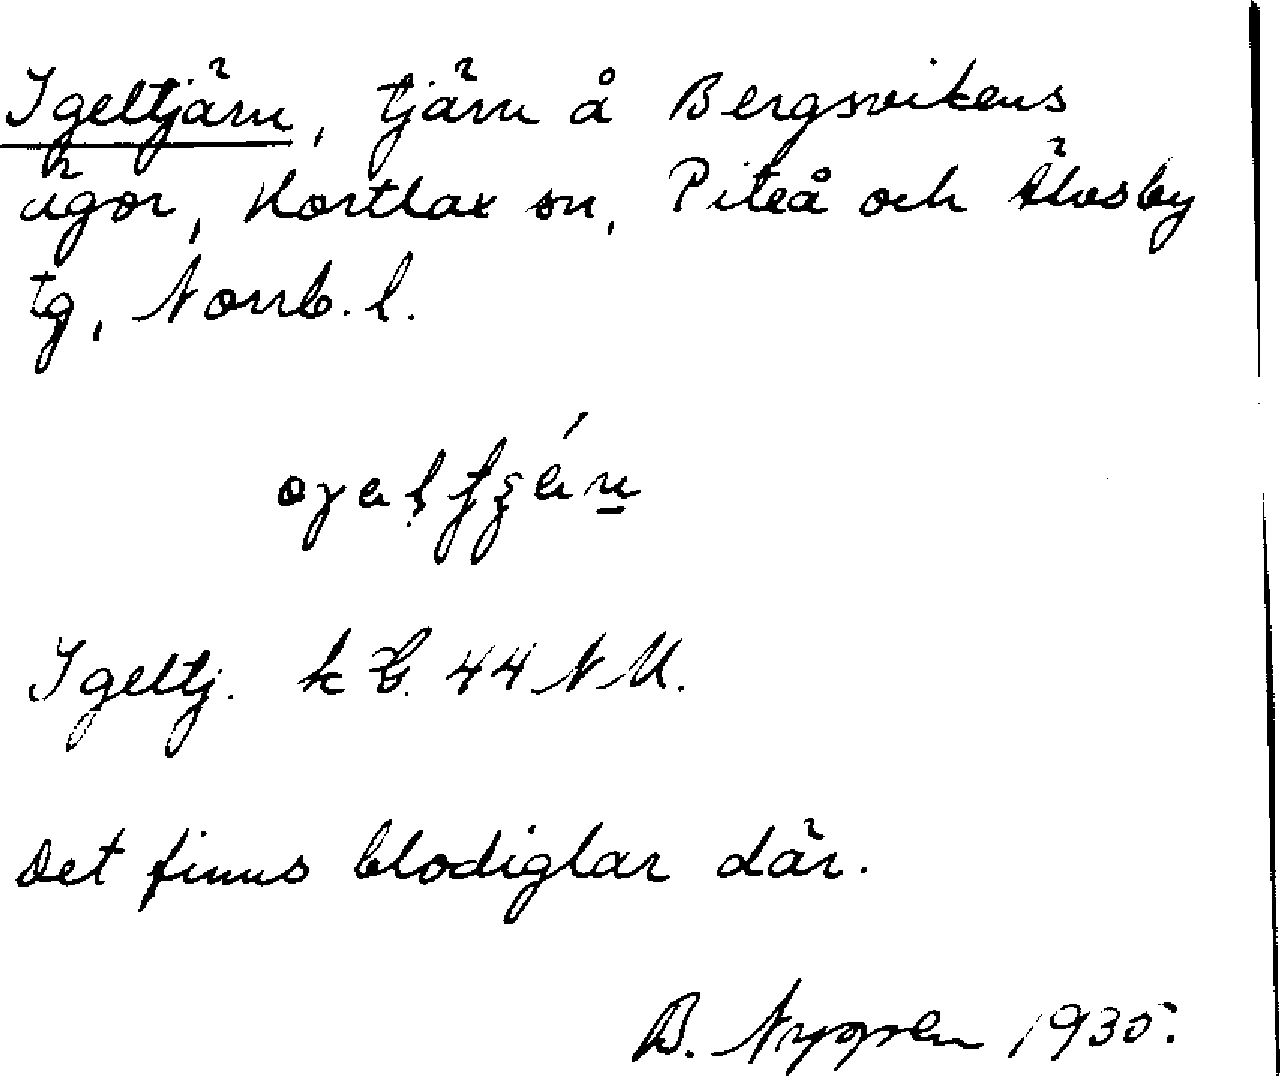 Igeltjärn, tjärn å Bergsvikens
ägor, Hortlax sn, Piteå och Älvsby
tg, Norrb. l.
Igeltj. k G. 44 N M.
Det finns blodiglar där.
B. Nygren 1935.